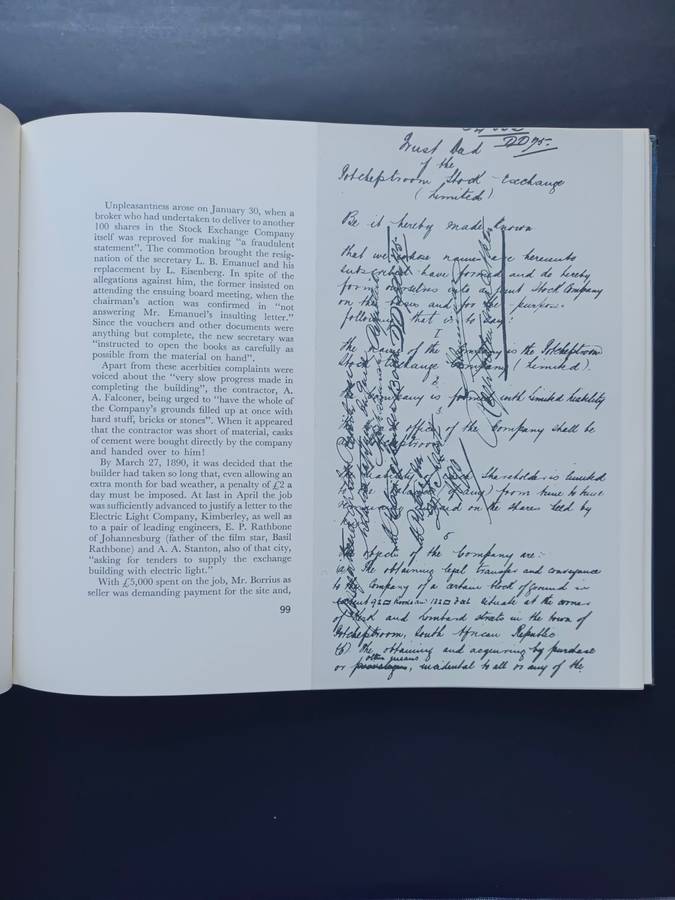 Unpleasantness arose on January 30, when a
broker who had undertaken to deliver to another
100 shares in the Stock Exchange Company
itself was reproved for making "a fraudulent
statement". The commotion brought the resig-
nation of the secretary L. B. Emanuel and his
replacement by L. Eisenberg. In spite of the
allegations against him, the former insisted on
attending the ensuing board meeting, when the
chairman's action was confirmed in "not
answering Mr. Emanuel's insulting letter."
Since the vouchers and other documents were
anything but complete, the new secretary was
"instructed to open the books as carefully as
possible from the material on hand".
Apart from these acerbities complaints were
voiced about the "very slow progress made in
completing the building", the contractor, A.
A. Falconer, being urged to "have the whole of
the Company's grounds filled up at once with
hard stuff, bricks or stones". When it appeared
that the contractor was short of material, casks
of cement were bought directly by the company
and handed over to him!
By March 27, 1890, it was decided that the
builder had taken so long that, even allowing an
extra month for bad weather, a penalty of £2 a
day must be imposed. At last in April the job
was sufficiently advanced to justify a letter to the
Electric Light Company, Kimberley, as well as
to a pair of leading engineers, E. P. Rathbone
of Johannesburg (father of the film star, Basil
Rathbone) and A. A. Stanton, also of that city,
"asking for tenders to supply the exchange
building with electric light."
With £5,000 spent on the job, Mr. Borrius as
seller was demanding payment for the site and,
99
Trust Deed
of the
Potchefstroom Stock Exchange
(Limited)
Be it hereby made known
that we whose names are hereunto
subscribed have formed and do hereby
form ourselves into a Joint Stock Company
on the basis and for the purpose
following that is to say
1
the name of the Company is the Potchefstroom
Stock Exchange Company (Limited).
2
Company is formed with limited liability
3
office of the Company shall be
Shareholder is limited
from time to time
on the shares held by
5
objects of the Company are:-
(a) The obtaining legal transfer and conveyance
to the Company of a certain block of ground in
situate at the corner
of and Lombard streets in the town of
Potchefstroom, South African Republic
(b) The obtaining and acquiring by purchase
or other means, incidental to all or any of the